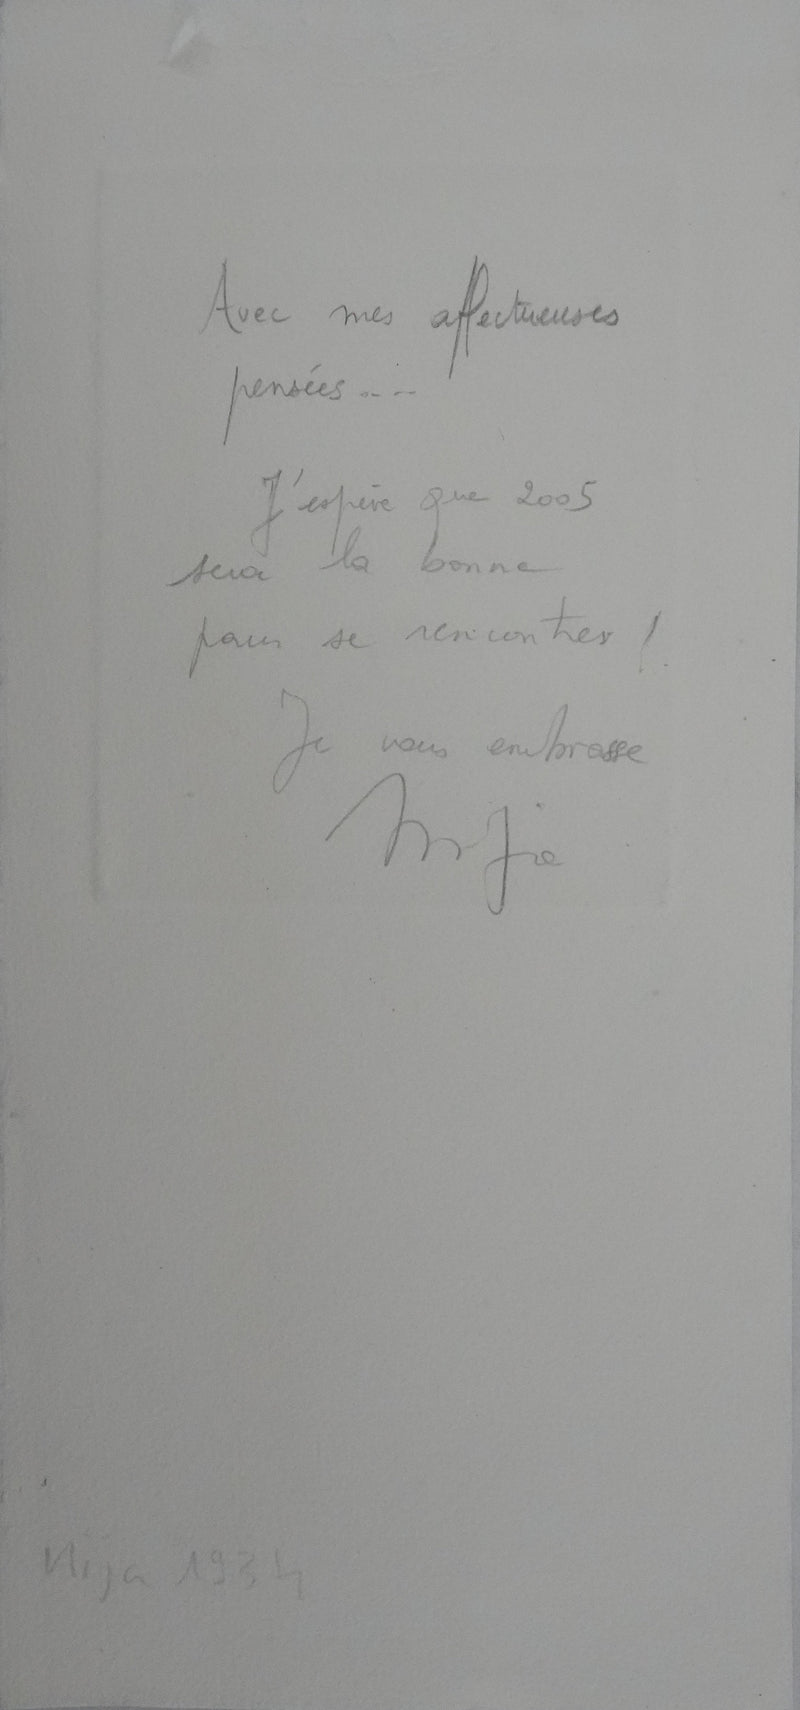 Avec mes affectueuses
pensées....
J'espère que 2005
sera la bonne
pour se rencontrer !
Je vous embrasse
Mija
Mija 1934